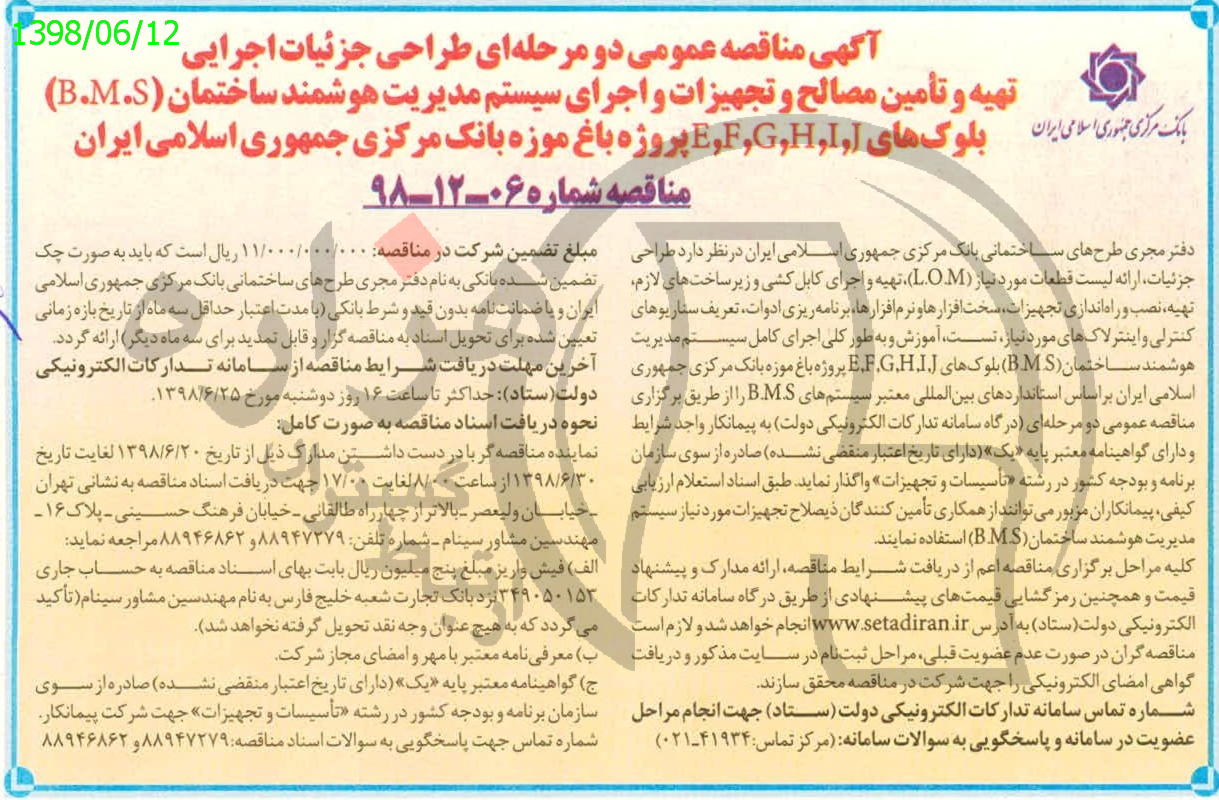 1398/06/12
آگهی مناقصه عمومی دو مرحله‌ای طراحی جزئیات اجرایی
تهیه و تأمین مصالح و تجهیزات و اجرای سیستم مدیریت هوشمند ساختمان (B.M.S)
بلوک‌های E,F,G,H,I,J پروژه باغ موزه بانک مرکزی جمهوری اسلامی ایران
بانک مرکزی جمهوری اسلامی ایران
مناقصه شماره ۰۶-۱۲-۹۸
دفتر مجری طرح‌های ساختمانی بانک مرکزی جمهوری اسلامی ایران در نظر دارد طراحی
جزئیات، ارائه لیست قطعات مورد نیاز (L.O.M)، تهیه و اجرای کابل کشی و زیرساخت‌های لازم،
تهیه، نصب و راه‌اندازی تجهیزات، سخت‌افزارها و نرم‌افزارها، برنامه‌ریزی ادوات، تعریف سناریوهای
کنترلی و اینترلاک‌های مورد نیاز، تست، آموزش و به طور کلی اجرای کامل سیستم مدیریت
هوشمند ساختمان (B.M.S) بلوک‌های E,F,G,H,I,J پروژه باغ موزه بانک مرکزی جمهوری
اسلامی ایران بر اساس استانداردهای بین‌المللی معتبر سیستم‌های B.M.S را از طریق برگزاری
مناقصه عمومی دو مرحله‌ای (درگاه سامانه تدارکات الکترونیکی دولت) به پیمانکار واجد شرایط
و دارای گواهینامه معتبر پایه «یک» (دارای تاریخ اعتبار منقضی نشده) صادره از سوی سازمان
برنامه و بودجه کشور در رشته «تأسیسات و تجهیزات» واگذار نماید. طبق اسناد استعلام ارزیابی
کیفی، پیمانکاران مزبور می‌توانند از همکاری تأمین کنندگان ذیصلاح تجهیزات مورد نیاز سیستم
مدیریت هوشمند ساختمان (B.M.S) استفاده نمایند.
کلیه مراحل برگزاری مناقصه اعم از دریافت شرایط مناقصه، ارائه مدارک و پیشنهاد
قیمت و همچنین رمزگشایی قیمت‌های پیشنهادی از طریق درگاه سامانه تدارکات
الکترونیکی دولت (ستاد) به آدرس www.setadiran.ir انجام خواهد شد و لازم است
مناقصه گران در صورت عدم عضویت قبلی، مراحل ثبت‌نام در سایت مذکور و دریافت
گواهی امضای الکترونیکی را جهت شرکت در مناقصه محقق سازند.
شماره تماس سامانه تدارکات الکترونیکی دولت (ستاد) جهت انجام مراحل
عضویت در سامانه و پاسخگویی به سوالات سامانه: (مرکز تماس: ۴۱۹۳۴-۰۲۱)
مبلغ تضمین شرکت در مناقصه: ۱۱/۰۰۰/۰۰۰/۰۰۰ ریال است که باید به صورت چک
تضمین شده بانکی به نام دفتر مجری طرح‌های ساختمانی بانک مرکزی جمهوری اسلامی
ایران و یا ضمانت‌نامه بدون قید و شرط بانکی (با مدت اعتبار حداقل سه ماه از تاریخ بازه زمانی
تعیین شده برای تحویل اسناد به مناقصه گزار و قابل تمدید برای سه ماه دیگر) ارائه گردد.
آخرین مهلت دریافت شرایط مناقصه از سامانه تدارکات الکترونیکی
دولت (ستاد): حداکثر تا ساعت ۱۶ روز دوشنبه مورخ ۱۳۹۸/۶/۲۵.
نحوه دریافت اسناد مناقصه به صورت کامل:
نماینده مناقصه‌گر با در دست داشتن مدارک ذیل از تاریخ ۱۳۹۸/۶/۲۰ لغایت تاریخ
۱۳۹۸/۶/۳۰ از ساعت ۸/۰۰ لغایت ۱۷/۰۰ جهت دریافت اسناد مناقصه به نشانی تهران
- خیابان ولیعصر - بالاتر از چهارراه طالقانی - خیابان فرهنگ حسینی - پلاک ۱۶ -
مهندسین مشاور سینام - شماره تلفن: ۸۸۹۴۷۲۷۹ و ۸۸۹۴۶۸۶۲ مراجعه نماید:
الف) فیش واریز مبلغ پنج میلیون ریال بابت بهای اسناد مناقصه به حساب جاری
۳۴۹۰۵۰۱۵۳ نزد بانک تجارت شعبه خلیج فارس به نام مهندسین مشاور سینام (تأکید
می‌گردد که به هیچ عنوان وجه نقد تحویل گرفته نخواهد شد).
ب) معرفی نامه معتبر با مهر و امضای مجاز شرکت.
ج) گواهینامه معتبر پایه «یک» (دارای تاریخ اعتبار منقضی نشده) صادره از سوی
سازمان برنامه و بودجه کشور در رشته «تأسیسات و تجهیزات» جهت شرکت پیمانکار.
شماره تماس جهت پاسخگویی به سوالات اسناد مناقصه: ۸۸۹۴۷۲۷۹ و ۸۸۹۴۶۸۶۲
هزاره